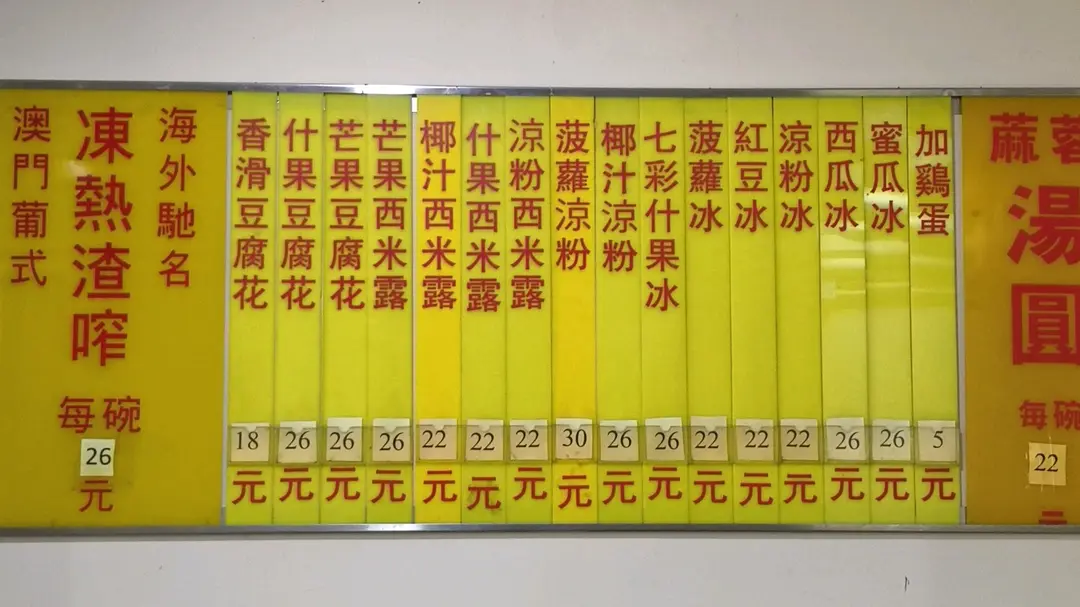 海外馳名
凍熱渣咋
澳門葡式
每碗
26
元
香滑豆腐花
18
元
什果豆腐花
26
元
芒果豆腐花
26
元
芒果西米露
26
元
椰汁西米露
22
元
什果西米露
22
元
涼粉西米露
22
元
菠蘿涼粉
30
元
椰汁涼粉
26
元
七彩什果冰
26
元
菠蘿冰
22
元
紅豆冰
22
元
涼粉冰
22
元
西瓜冰
26
元
蜜瓜冰
26
元
加鷄蛋
5
元
蔴蓉
湯圓
每碗
22